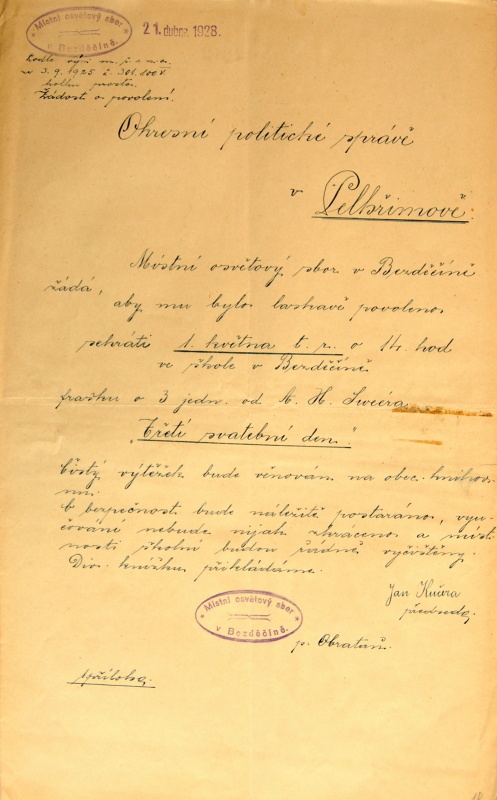 Místní osvětový sbor
v Bezděčíně.
21. dubna 1928.
3. 9. 1925 č. 301.100 V.
kolku prosto.
Žádost o povolení.
Okresní politické správě
v Pelhřimově.
Místní osvětový sbor v Bezděčíně
žádá, aby mu bylo laskavě povoleno
sehráti 1. května t. r. o 14. hod
ve škole v Bezděčíně
frašku o 3 jedn. od
"Třetí svatební den".
Čistý výtěžek bude věnován na obec. knihov-
nu.
O bezpečnost bude náležitě postaráno, vyu-
čování nebude nijak zkráceno a míst-
nosti školní budou řádně vyčištěny.
Div. knížku přikládáme.
Jan Kučera
předseda.
Místní osvětový sbor
v Bezděčíně.
p. Obrataň.
1 příloha.